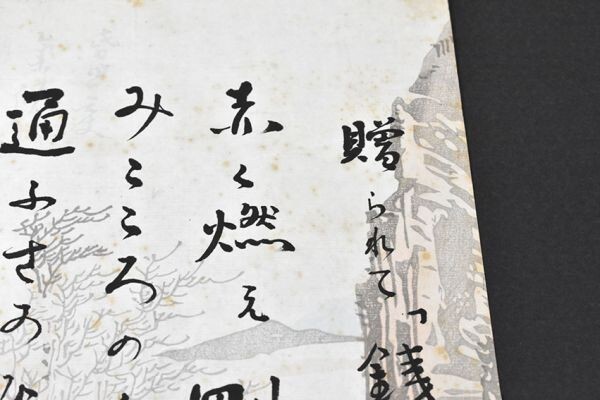 贈られて「銭
赤く燃え
みこころの
通ふさの